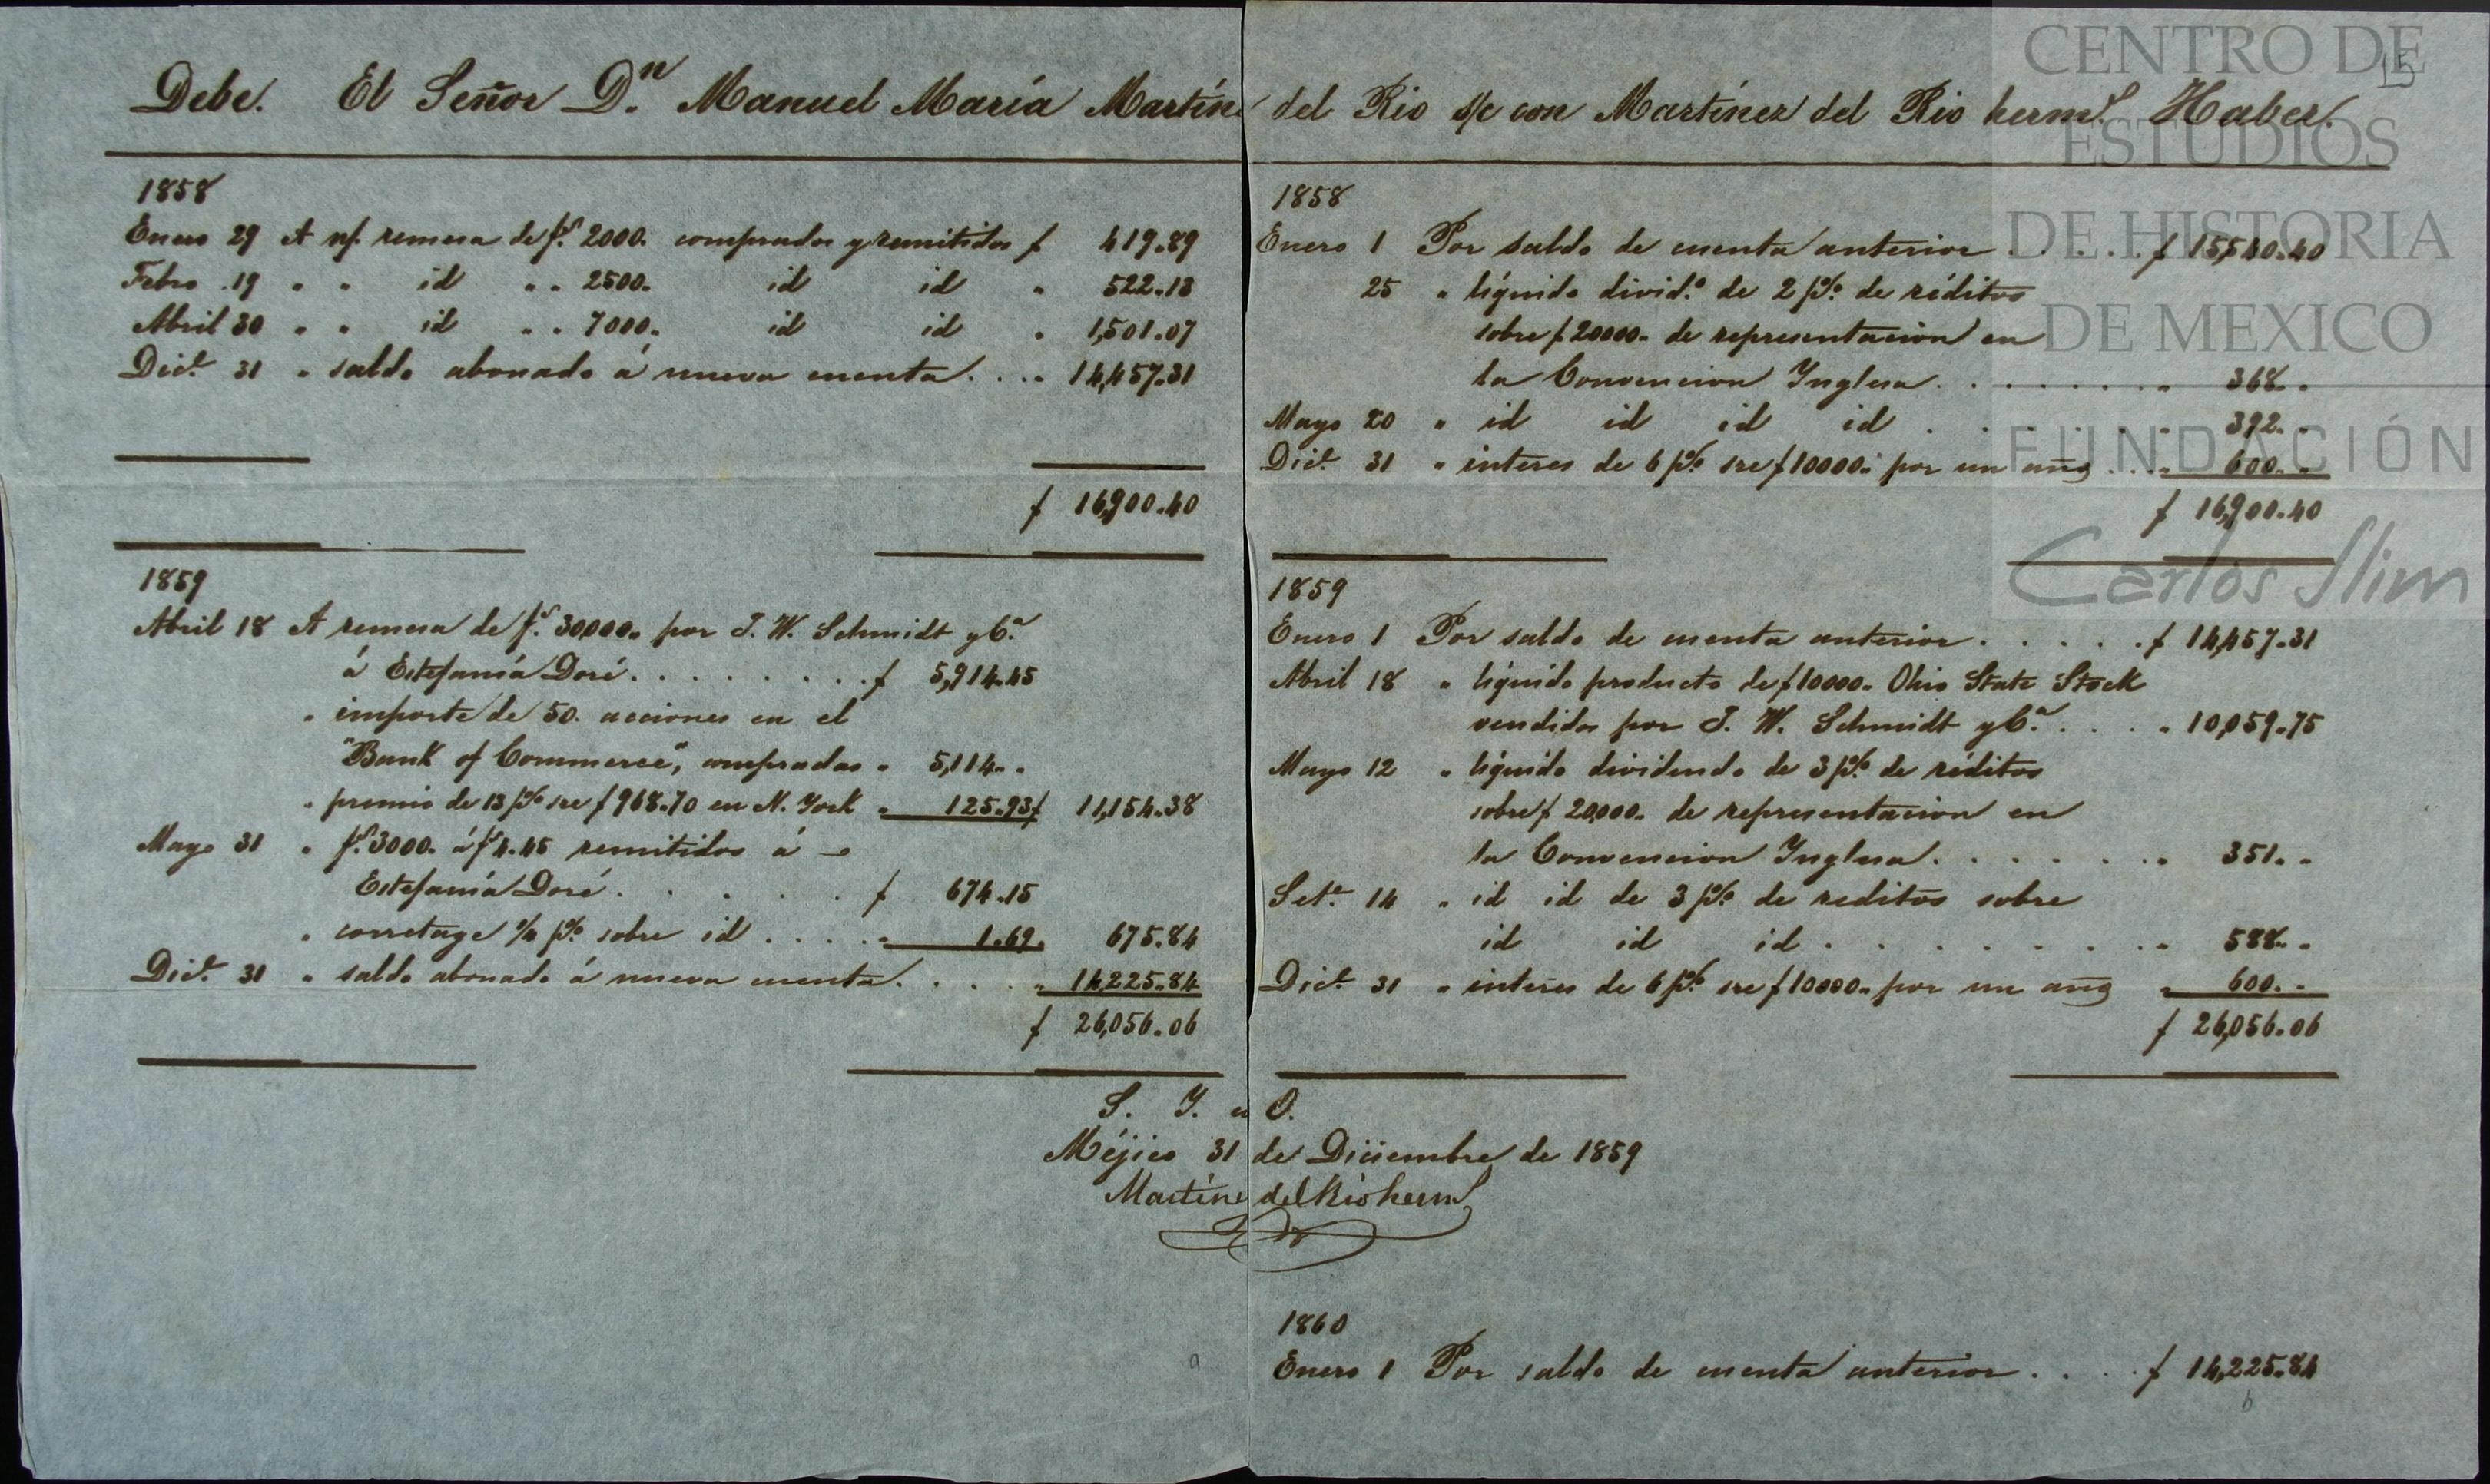 Debe. El Señor Dn. Manuel María Martíne del Rio s/c con Martínez del Rio herms. Haber.
1858
Enero 29 A n/. remesa de fs. 2000. comprados y remitidos $ 419.89
Febro. 19 " " id " " 2500. id id " 522.13
Abril 30 " " id " " 7000. id id " 1,501.07
Dice. 31 " saldo abonado á nueva cuenta. . . " 14,457.31
$ 16,900.40
1859
Abril 18 A remesa de fs. 30,000. por J. W. Schmidt y Ca.
á Estefanía Doré . . . . . . . . . $ 5,914.45
" importe de 50. acciones en el
"Bank of Commerce", compradas " 5,114. "
" premio de 13 p% sre $ 968.70 en N. York " 125.93 $ 11,154.38
Mayo 31 " fs. 3000. á f 4.45 remitidos á
Estefanía Doré . . . . . $ 674.15
" corretage 1/4 p% sobre id . . . . " 1.69. 675.84
Dice. 31 " saldo abonado á nueva cuenta . . . . " 14,225.84
$ 26,056.06
1858
Enero 1 Por saldo de cuenta anterior . . . . $ 15,540.40
25 " líquido divido. de 2 p% de réditos
sobre $ 20000. de representacion en
la Convencion Inglesa . . . . . . . " 368. "
Mayo 20 " id id id id . . . . . " 392. "
Dice. 31 " interes de 6 p% sre $ 10000. por un año . . . " 600. "
$ 16,900.40
1859
Enero 1 Por saldo de cuenta anterior . . . . . $ 14,457.31
Abril 18 " líquido producto de $ 10000. Ohio State Stock
vendidos por J. W. Schmidt y Ca. . . . " 10,059.75
Mayo 12 " líquido dividendo de 3 p% de réditos
sobre $ 20,000. de representacion en
la Convencion Inglesa . . . . . . " 351. "
Sete. 14 " id id de 3 p% de reditos sobre
id id id . . . . . . . " 588. "
Dice. 31 " interes de 6 p% sre $ 10000. por un año " 600. "
$ 26,056.06
S. Y. u O.
Méjico 31 de Diciembre de 1859
Martíne del Rio herms.
1860
Enero 1 Por saldo de cuenta anterior . . . . $ 14,225.84
a
b
15
CENTRO DE
ESTUDIOS
DE HISTORIA
DE MEXICO
FUNDACIÓN
Carlos Slim